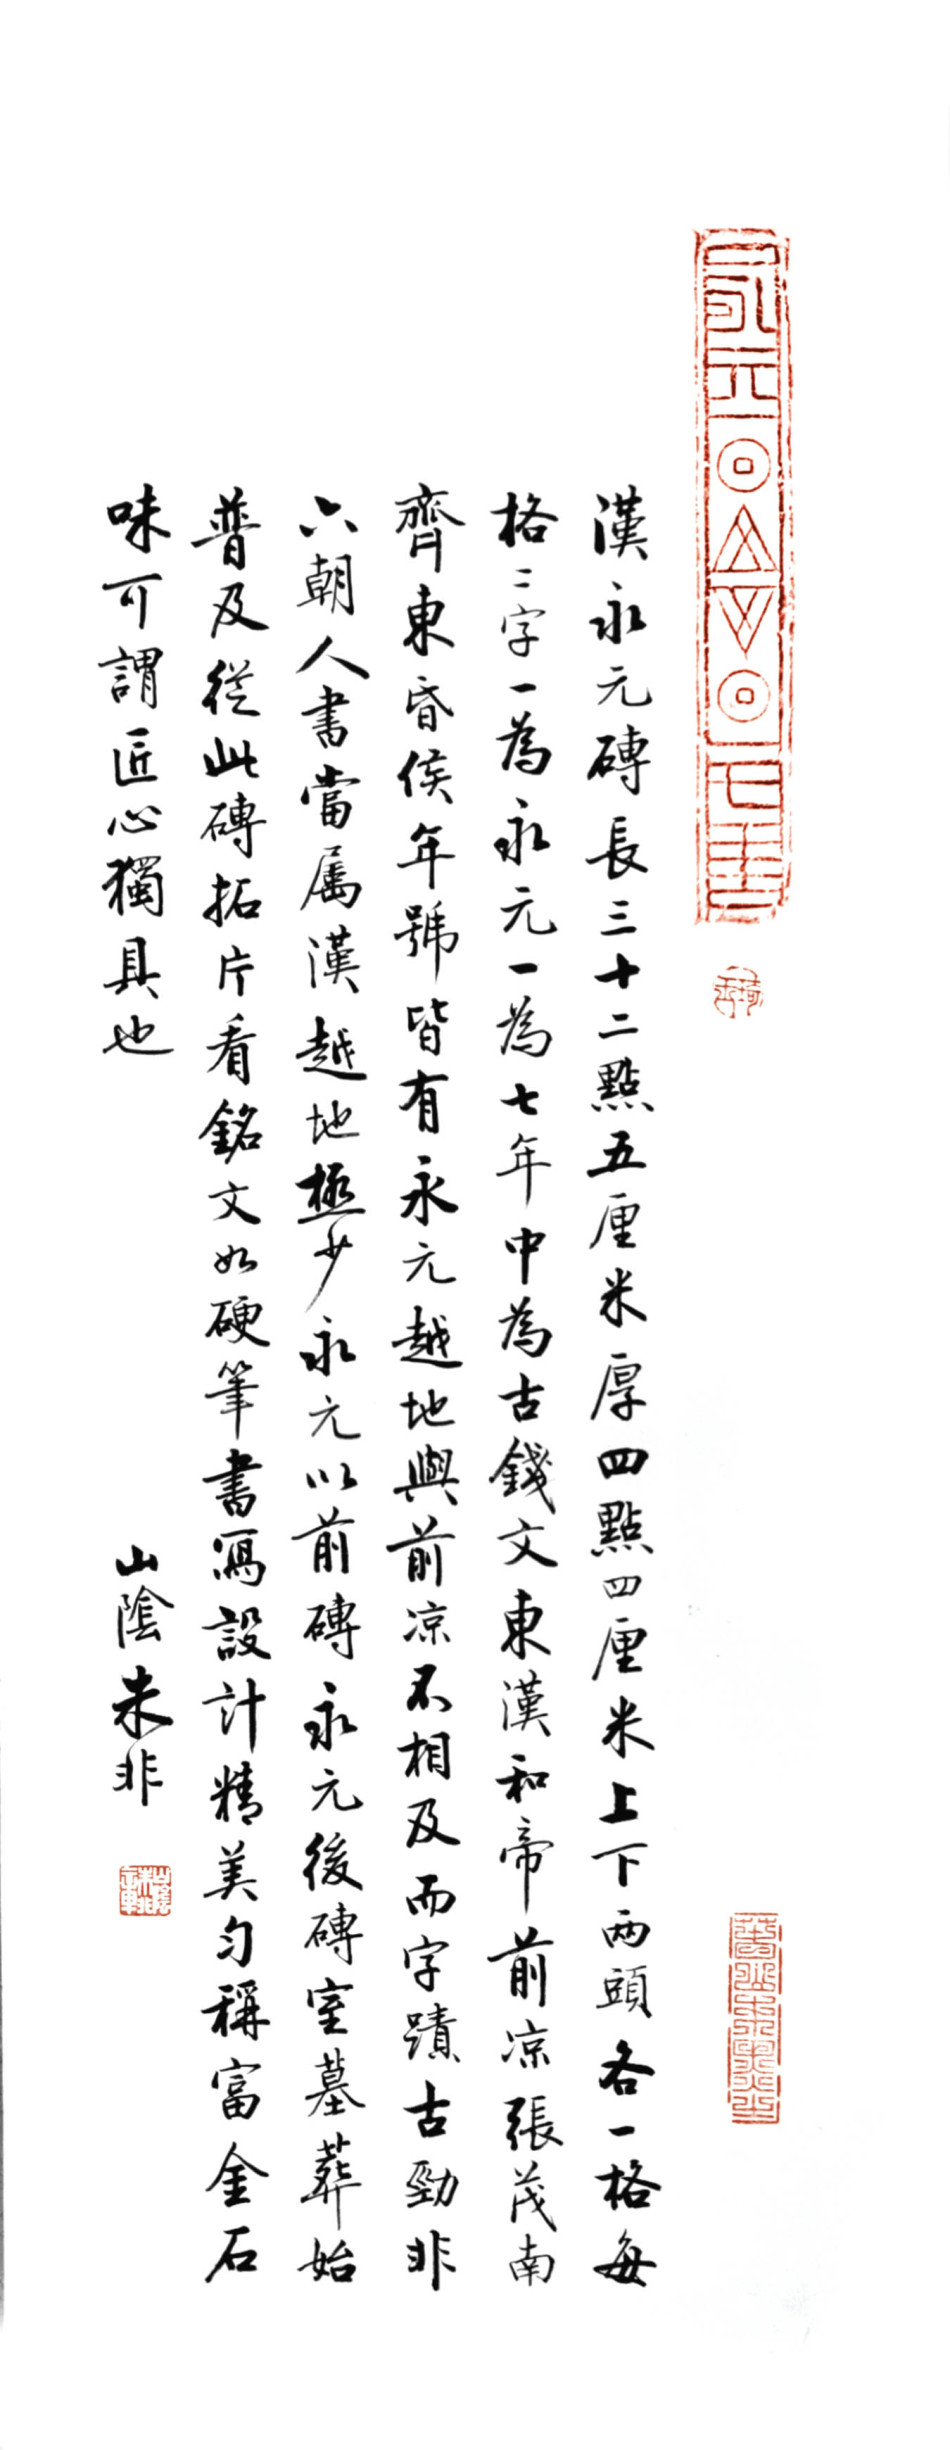 永元
七年
漢永元磚長三十二點五厘米厚四點四厘米上下兩頭各一格每
格二字一為永元一為七年中為古錢文東漢和帝前凉張茂南
齊東昏侯年號皆有永元越地與前凉不相及而字蹟古勁非
六朝人書當属漢越地極少永元以前磚永元後磚室墓葬始
普及從此磚拓片看銘文如硬筆書寫設計精美匀稱富金石
味可謂匠心獨具也
山陰朱非